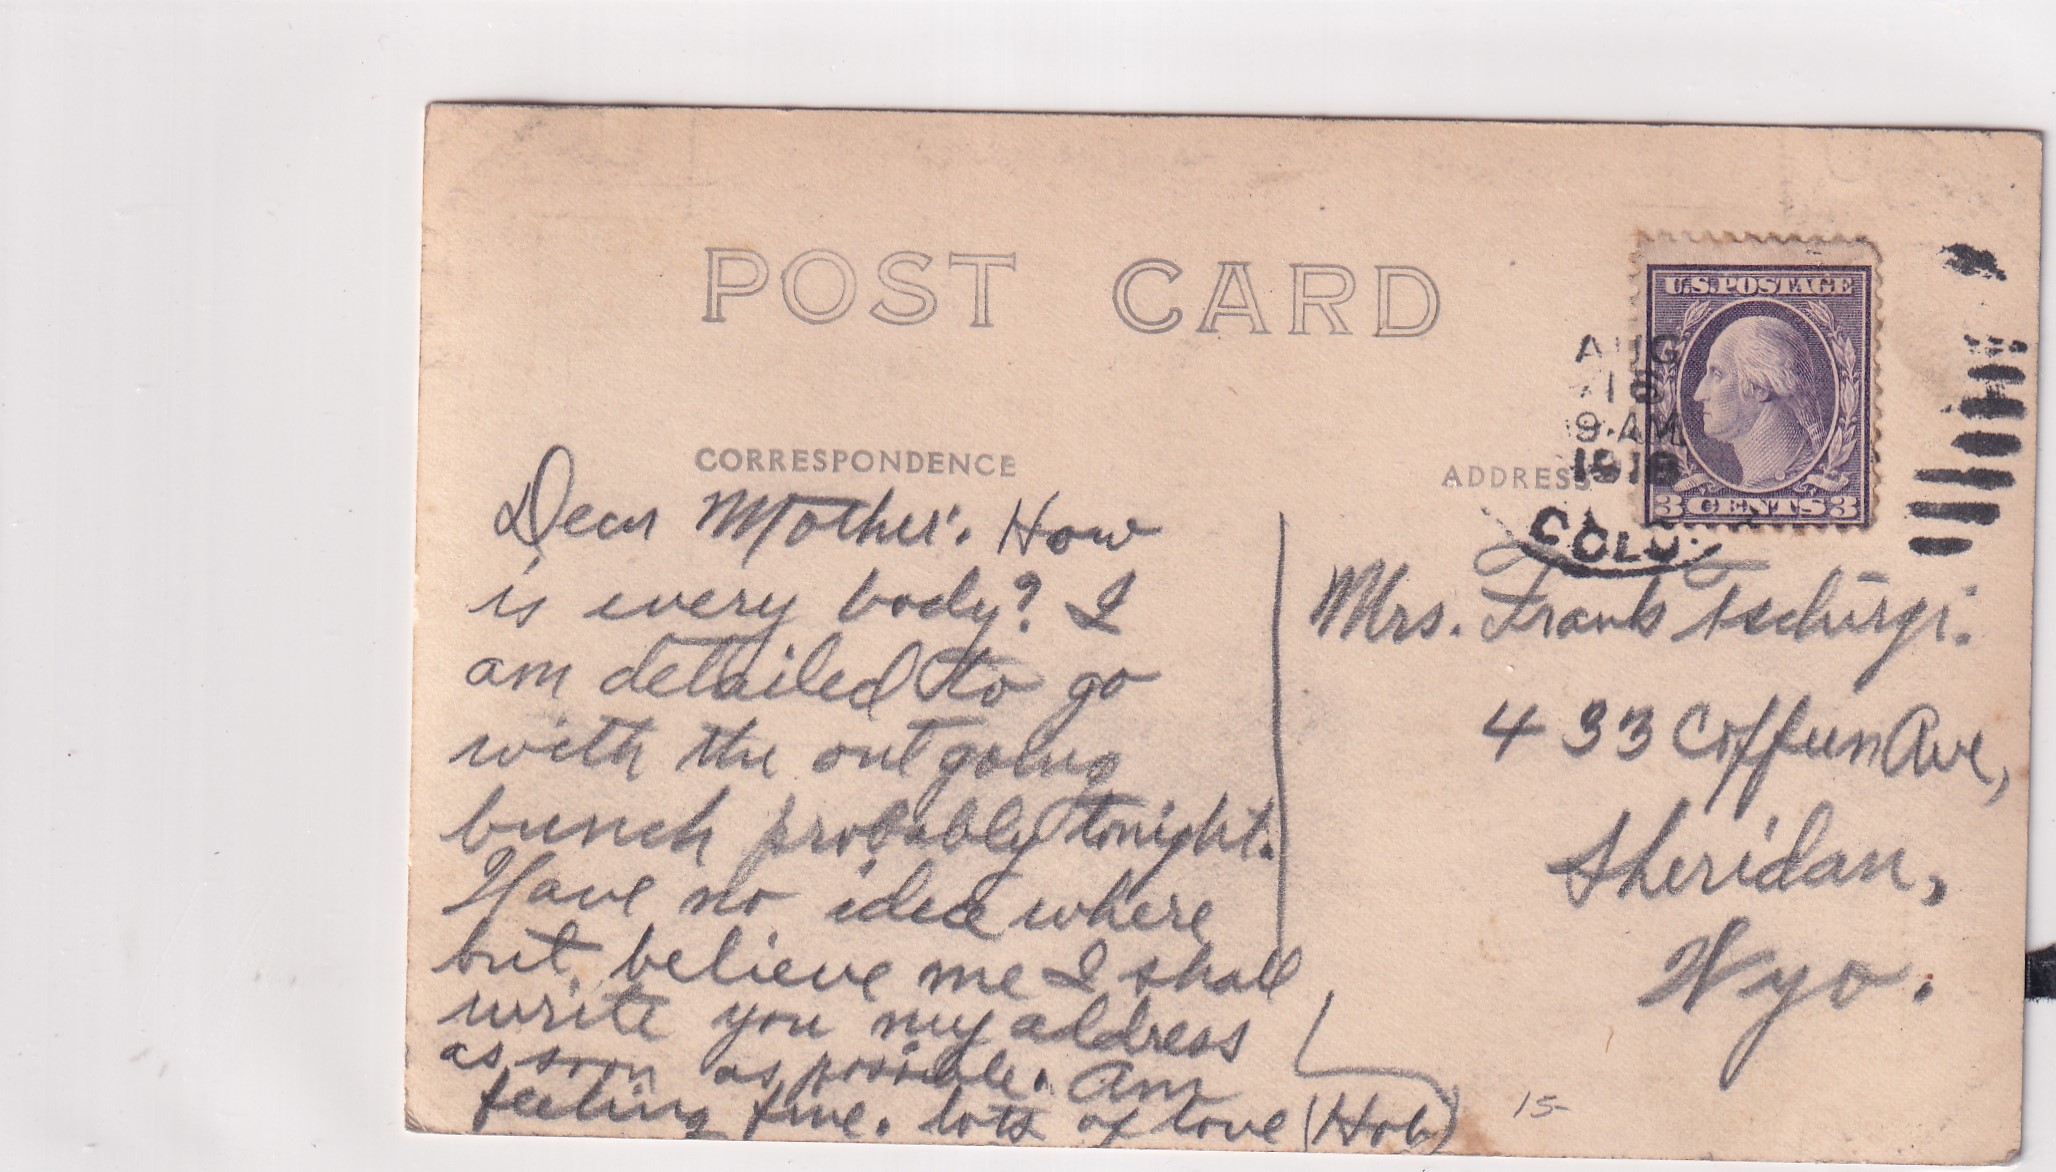 POST CARD
U.S. POSTAGE
3 CENTS 3
AUG
9-AM
1918
COLO.
CORRESPONDENCE
ADDRESS
Dear Mother. How
is every body? I
am detailed to go
with the outgoing
bunch probably tonight.
Have no idea where
but believe me I shall
write you my address
as soon as possible. Am
feeling fine. lots of love (Hob)
Mrs. Frank Tschirgi.
433 Coffeen Ave,
Sheridan,
Wyo.
15-